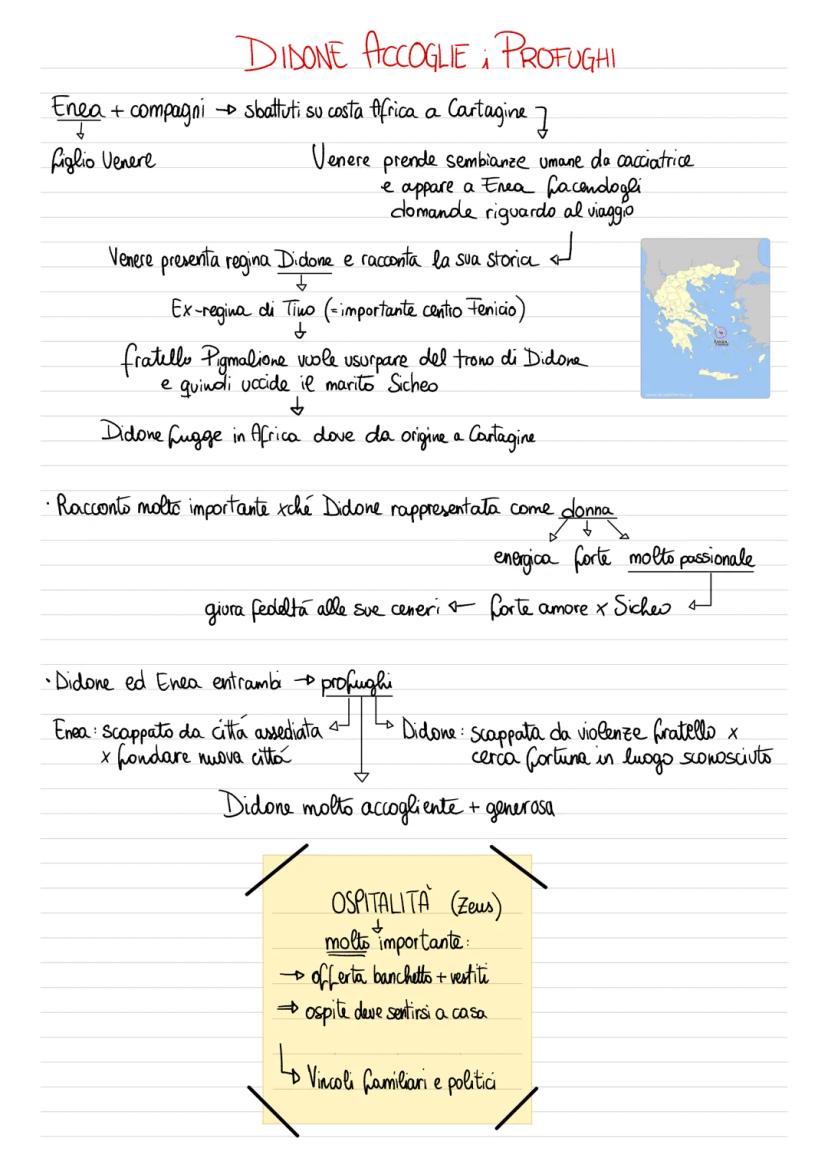 DIDONE ACCOGLIE i PROFUGHI
Enea + compagni → sbattuti su costa Africa a Cartagine
figlio Venere
Venere prende sembianze umane da cacciatrice
e appare a Enea facendogli
domande riguardo al viaggio
Venere presenta regina Didone e racconta la sua storia
Ex-regina di Tiro (=importante centro Fenicio)
fratello Pigmalione vuole usurpare del trono di Didone
e quindi uccide il marito Sicheo
Didone fugge in Africa dove da origine a Cartagine
· Racconto molto importante xché Didone rappresentata come donna
energica forte molto passionale
giura fedeltá alle sue ceneri ← forte amore x Sicheo
· Didone ed Enea entrambi → profughi
Enea: scappato da cittá assediata
x fondare nuova cittá
Didone: scappata da violenze fratello x
cerca fortuna in luogo sconosciuto
Didone molto accogliente + generosa
OSPITALITÀ (Zeus)
molto importante:
→ offerta banchetto + vestiti
⇒ ospite deve sentirsi a casa
↳ Vincoli familiari e politici